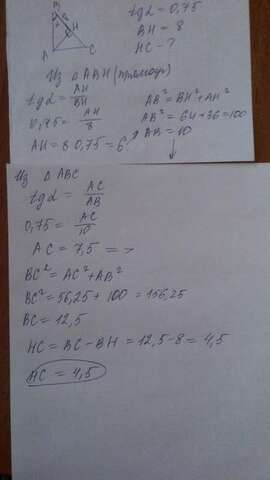 B
α
H
A C
tgα = 0,75
BH = 8
HC - ?
Из △ABH (прямоуг)
tgα = AH/BH
0,75 = AH/8
AH = 8·0,75 = 6
AB² = BH² + AH²
AB² = 64 + 36 = 100
AB = 10
Из △ABC
tgα = AC/AB
0,75 = AC/10
AC = 7,5 =>
BC² = AC² + AB²
BC² = 56,25 + 100 = 156,25
BC = 12,5
HC = BC - BH = 12,5 - 8 = 4,5
HC = 4,5